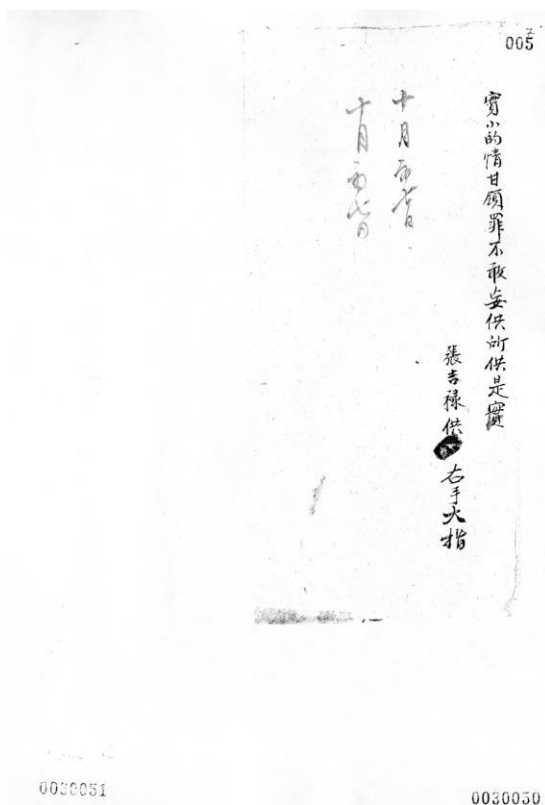 005
實小的情甘領罪不敢妄供所供是實
張吉祿供 右手大指
十月
十月
0030051
0030050